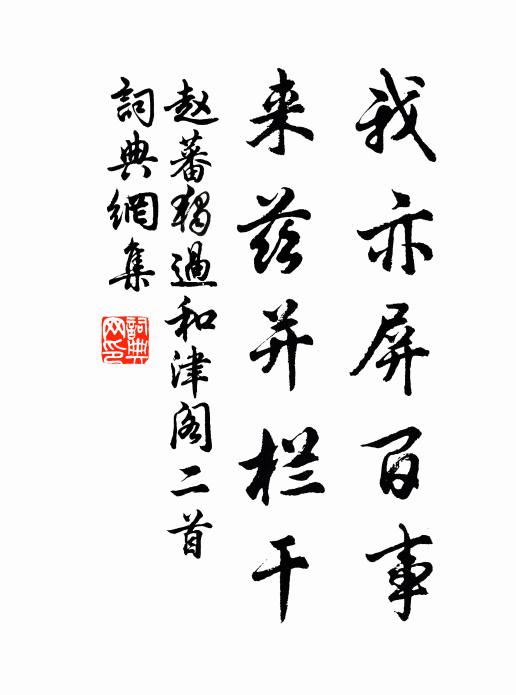 我亦屏百事
来兹并栏干
赵蕃独過和津阁二首
詞典網集
詞典网印